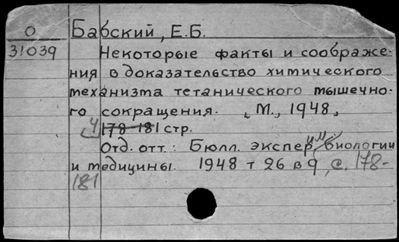 О Бабский, Е.Б.
31039 Некоторые факты и соображе-
ния в доказательство химического
механизма тетанического мышечно-
го сокращения. М., 1948,
4 178-181 стр.
Отд. отт.: Бюлл. экспер. им биологии
и медицины. 1948 т 26 в 9, с. 178-
181